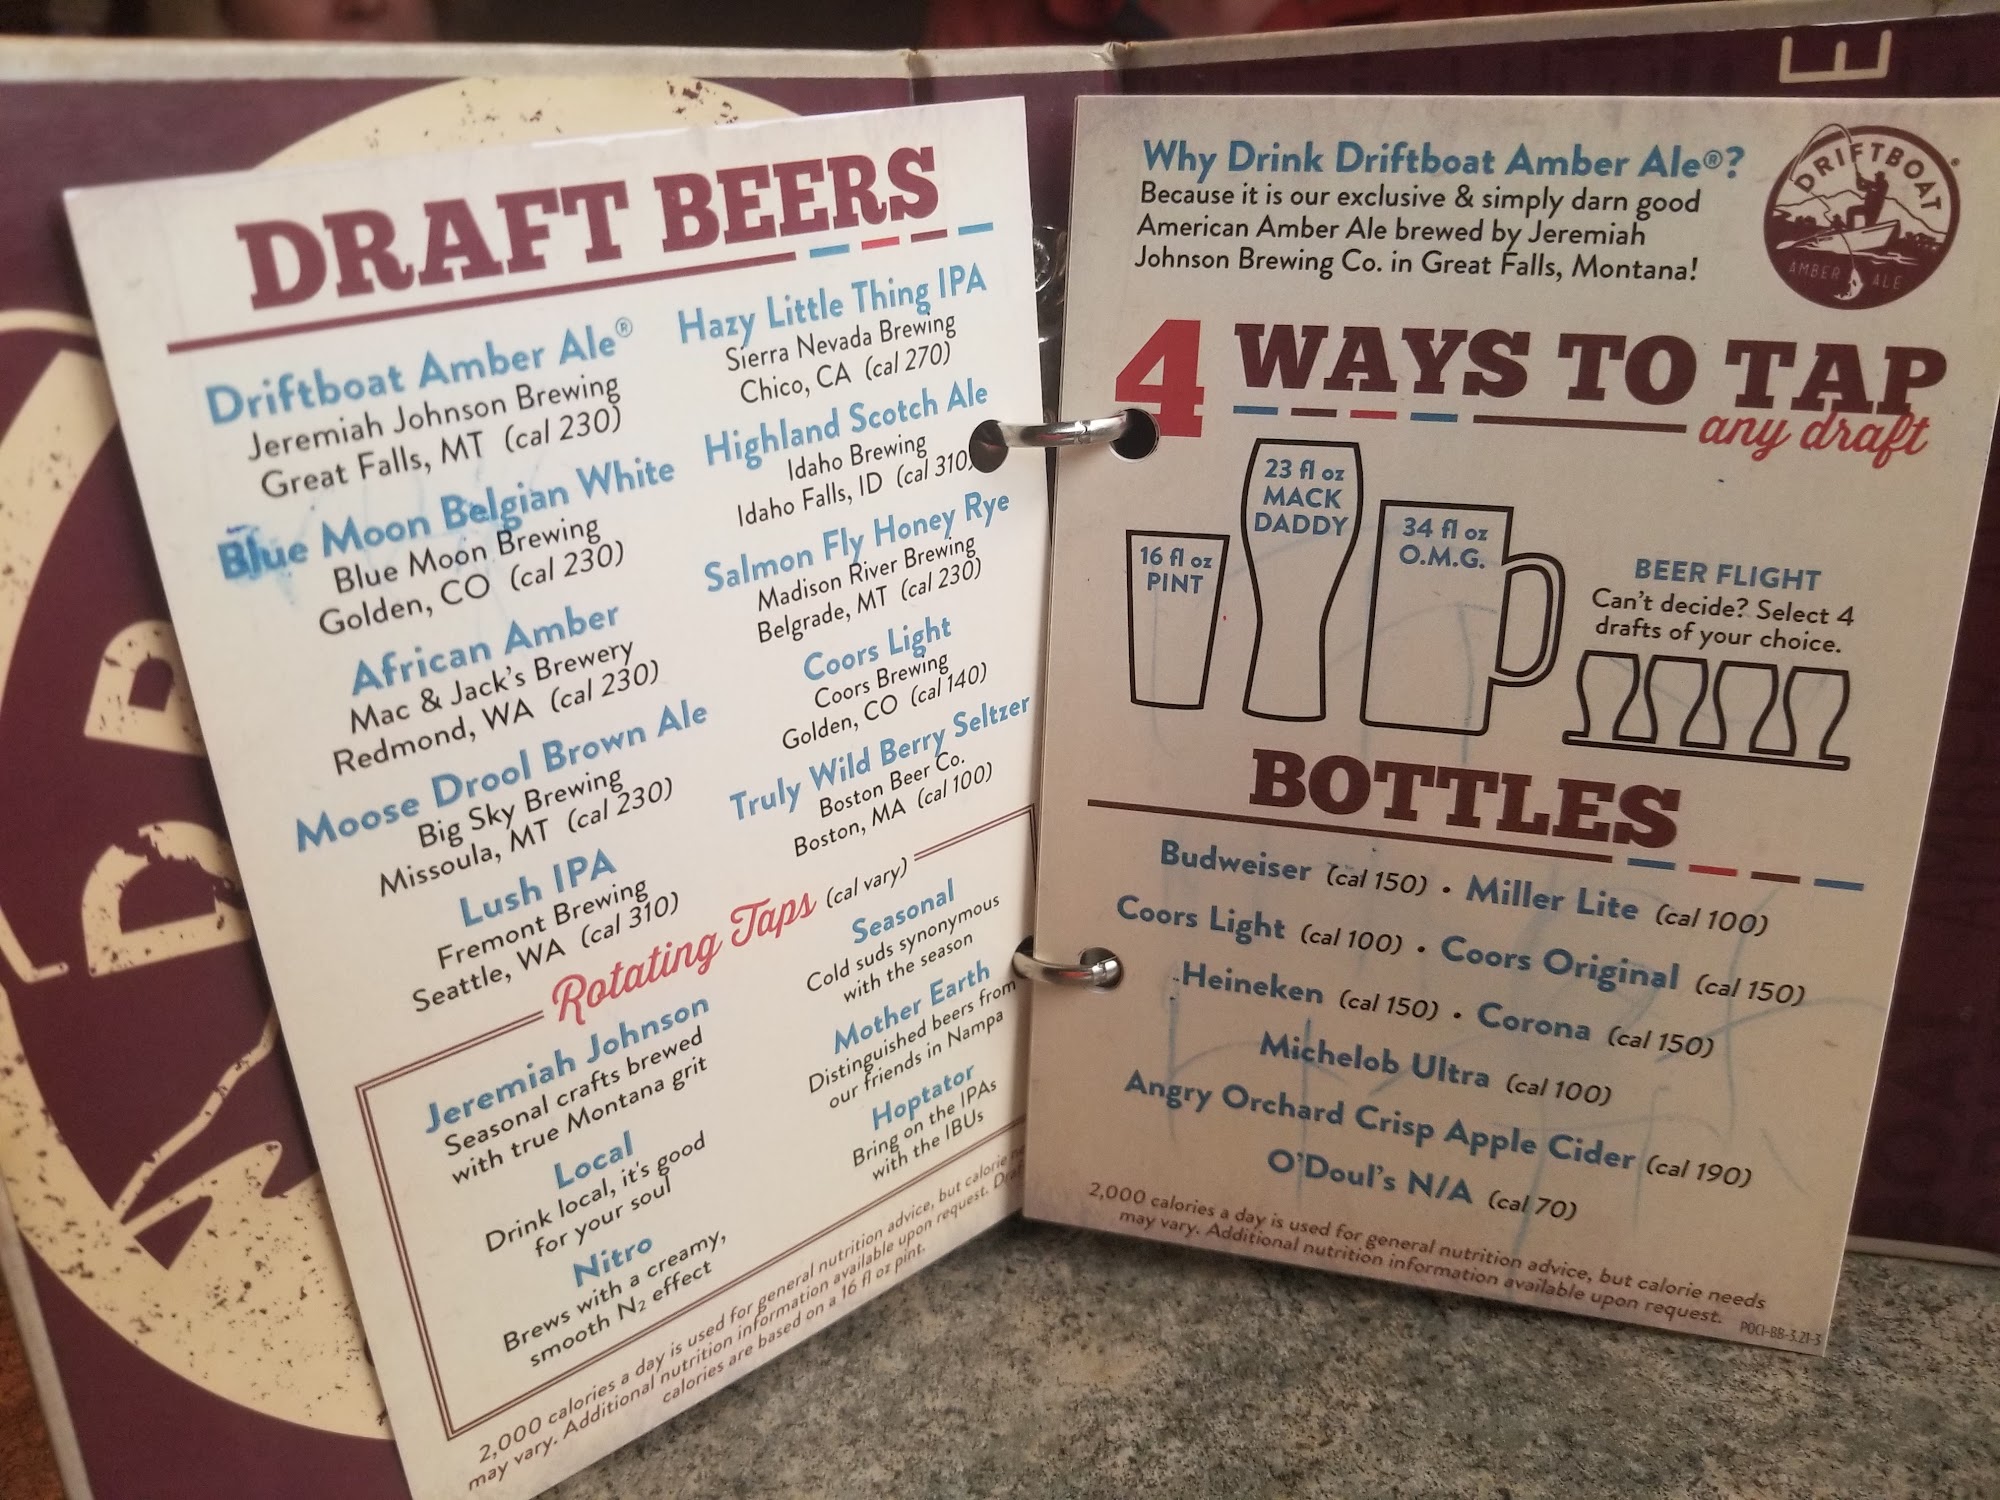 DRAFT BEERS
Driftboat Amber Ale®
Jeremiah Johnson Brewing
Great Falls, MT (cal 230)
Blue Moon Belgian White
Blue Moon Brewing
Golden, CO (cal 230)
African Amber
Mac & Jack's Brewery
Redmond, WA (cal 230)
Moose Drool Brown Ale
Big Sky Brewing
Missoula, MT (cal 230)
Lush IPA
Fremont Brewing
Seattle, WA (cal 310)
Hazy Little Thing IPA
Sierra Nevada Brewing
Chico, CA (cal 270)
Highland Scotch Ale
Idaho Brewing
Idaho Falls, ID (cal 310)
Salmon Fly Honey Rye
Madison River Brewing
Belgrade, MT (cal 230)
Coors Light
Coors Brewing
Golden, CO (cal 140)
Truly Wild Berry Seltzer
Boston Beer Co.
Boston, MA (cal 100)
Rotating Taps (cal vary)
Jeremiah Johnson
Seasonal crafts brewed
with true Montana grit
Local
Drink local, it's good
for your soul
Nitro
Brews with a creamy,
smooth N₂ effect
Seasonal
Cold suds synonymous
with the season
Mother Earth
Distinguished beers from
our friends in Nampa
Hoptator
Bring on the IPAs
with the IBUs
2,000 calories a day is used for general nutrition advice, but calorie
may vary. Additional nutrition information available upon request.
calories are based on a 16 fl oz pint.
Why Drink Driftboat Amber Ale®?
Because it is our exclusive & simply darn good
American Amber Ale brewed by Jeremiah
Johnson Brewing Co. in Great Falls, Montana!
DRIFTBOAT®
AMBER ALE
4 WAYS TO TAP
any draft
16 fl oz
PINT
23 fl oz
MACK
DADDY
34 fl oz
O.M.G.
BEER FLIGHT
Can't decide? Select 4
drafts of your choice.
BOTTLES
Budweiser (cal 150) • Miller Lite (cal 100)
Coors Light (cal 100) • Coors Original (cal 150)
Heineken (cal 150) • Corona (cal 150)
Michelob Ultra (cal 100)
Angry Orchard Crisp Apple Cider (cal 190)
O'Doul's N/A (cal 70)
2,000 calories a day is used for general nutrition advice, but calorie needs
may vary. Additional nutrition information available upon request.
POCI-BB-3.21-3
E